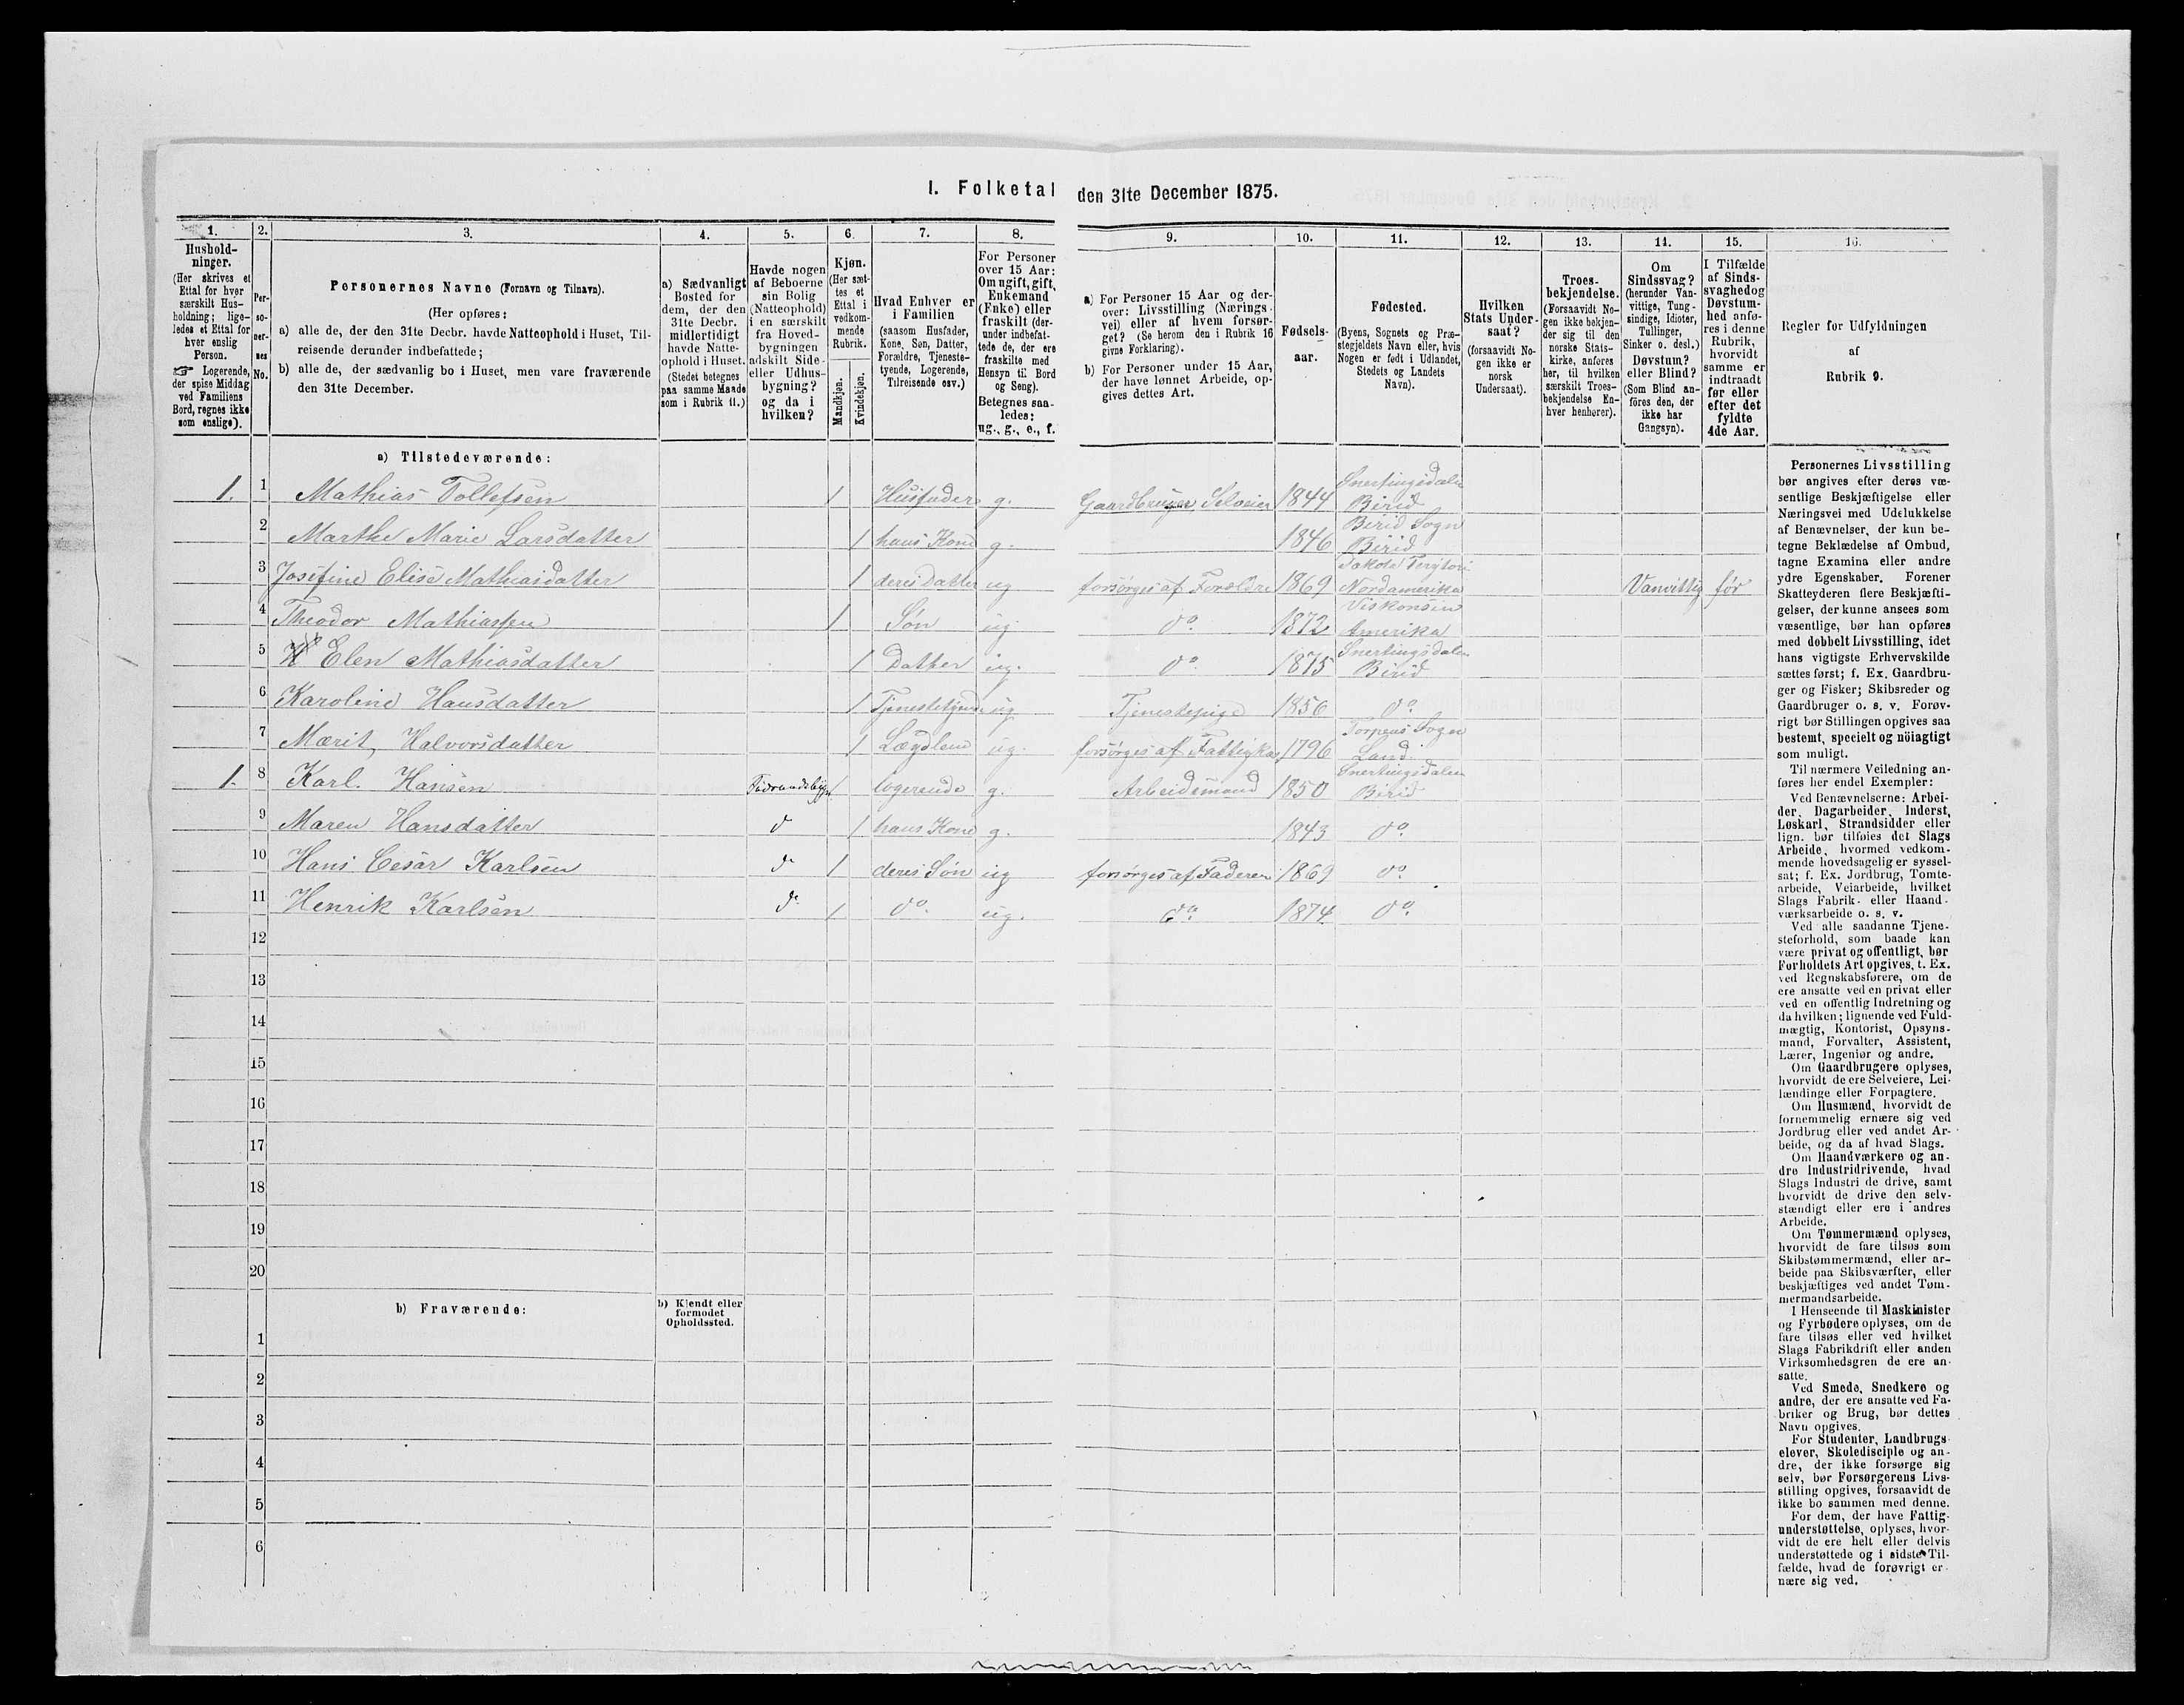 I. Folketal den 31te December 1875.
1.
Hushold-
ninger.
(Her skrives et
Ettal for hver
særskilt Hus-
holdning; lige-
ledes et Ettal for
hver enslig
Person.
☞ Logerende,
der spise Middag
ved Familiens
Bord, regnes ikke
som enslige).
2.
Per-
so-
ner-
nes
No.
3.
Personernes Navne (Fornavn og Tilnavn).
(Her opføres:
a) alle de, der den 31te Decbr. havde Natteophold i Huset, Til-
reisende derunder indbefattede;
b) alle de, der sædvanlig bo i Huset, men vare fraværende
den 31te December.
4.
a) Sædvanligt
Bosted for
dem, der den
31te Decbr.
midlertidigt
havde Natte-
ophold i Huset.
(Stedet betegnes
paa samme Maade
som i Rubrik 11.)
5.
Havde nogen
af Beboerne
sin Bolig
(Natteophold)
i en særskilt
fra Hoved-
bygningen
adskilt Side-
eller Udhus-
bygning?
og da i
hvilken?
6.
Kjøn.
(Her sæt-
tes et
Ettal i
vedkom-
mende
Rubrik.
Mandkjøn.
Kvindekjøn.
7.
Hvad Enhver er
i Familien
(saasom Husfader,
Kone, Søn, Datter,
Forældre, Tjeneste-
tyende, Logerende,
Tilreisende osv.)
8.
For Personer
over 15 Aar:
Om ugift, gift,
Enkemand
(Enke) eller
fraskilt (der-
under indbefat-
tede de, der ere
fraskilte med
Hensyn til Bord
og Seng).
Betegnes saa-
ledes:
ug., g., e., f.
9.
a) For Personer 15 Aar og der-
over: Livsstilling (Nærings-
vei) eller af hvem forsør-
get? (Se herom den i Rubrik 16
givne Forklaring).
b) For Personer under 15 Aar,
der have lønnet Arbeide, op-
gives dettes Art.
10.
Fødsels-
aar.
11.
Fødested.
(Byens, Sognets og Præ-
stegjeldets Navn eller, hvis
Nogen er født i Udlandet,
Stedets og Landets
Navn).
12.
Hvilken
Stats Under-
saat?
(forsaavidt No-
gen ikke er
norsk
Undersaat).
13.
Troes-
bekjendelse.
(Forsaavidt No-
gen ikke bekjen-
der sig til den
norske Stats-
kirke, anføres
her, til hvilken
særskilt Troes-
bekjendelse En-
hver henhører).
14.
Om
Sindssvag?
(herunder Van-
vittige, Tung-
sindige, Idioter,
Tullinger,
Sinker o. desl.)
Døvstum?
eller Blind?
(Som Blind an-
föres den, der
ikke har
Gangsyn).
15.
I Tilfælde
af Sinds-
svaghed og
Døvstum-
hed anfø-
res i denne
Rubrik,
hvorvidt
samme er
indtraadt
før eller
efter det
fyldte
4de Aar.
16.
Regler for Udfyldningen
af
Rubrik 9.
a) Tilstedeværende:
1. 1 Mathias Tollefsen 1 Husfader g. Gaardbruger, Selveier 1844 Snertingsdalen Birid
2 Marthe Marie Larsdatter 1 hans Kone g. 1846 Birid Sogn Birid
3 Josefine Elise Mathiasdatter 1 deres Datter ug forsørges af Foreldre 1869 Dakota Terytori Nordamerika Vanvittig før
4 Theodor Mathiassen 1 Søn ug do. 1872 Viskonsin Amerika
5 Elen Mathiasdatter 1 Datter ug. do. 1875 Snertingsdalen Birid
6 Karoline Hansdatter 1 Tjenestetyende ug Tjenestepige 1856 do.
7 Mærit Halvorsdatter 1 Lægdlem ug. forsørges af Fattigkas 1796 Torpens Sogn Land
1. 8 Karl. Hansen 1 logerende g. Arbeidsmand 1850 Snertingsdalen Birid
9 Maren Hansdatter d 1 hans Kone g. 1843 do.
10 Hans Cesar Karlsen d 1 deres Søn ug forsørges af Faderen 1869 do.
11 Henrik Karlsen d 1 do. ug. do. 1874 do.
12
13
14
15
16
17
18
19
20
b) Fraværende:
b) Kjendt eller
formodet
Opholdssted.
1
2
3
4
5
6
Personernes Livsstilling
bør angives efter deres væ-
sentlige Beskjæftigelse eller
Næringsvei med Udelukkelse
af Benævnelser, der kun be-
tegne Beklædelse af Ombud,
tagne Examina eller andre
ydre Egenskaber. Forener
Skatteyderen flere Beskjæfti-
gelser, der kunne ansees som
væsentlige, bør han opføres
med dobbelt Livsstilling, idet
hans vigtigste Erhvervskilde
sættes først; f. Ex. Gaardbru-
ger og Fisker; Skibsreder og
Gaardbruger o. s. v. Forøv-
rigt bør Stillingen opgives saa
bestemt, specielt og nöiagtigt
som muligt.
Til nærmere Veiledning an-
føres her endel Exempler:
Ved Benævnelserne: Arbei-
der, Dagarbeider, Inderst,
Løskarl, Strandsidder eller
lign. bør tilføies det Slags
Arbeide, hvormed vedkom-
mende hovedsagelig er syssel-
sat; f. Ex. Jordbrug, Tomte-
arbeide, Veiarbeide, hvilket
Slags Fabrik- eller Haand-
værksarbeide o. s. v.
Ved alle saadanne Tjene-
steforhold, som baade kan
være privat og offentligt, bør
Forholdets Art opgives, t. Ex.
ved Regnskabsførere, om de
ere ansatte ved en privat eller
ved en offentlig Indretning og
da hvilken; lignende ved Fuld-
mægtig, Kontorist, Opsyns-
mand, Forvalter, Assistent,
Lærer, Ingeniør og andre.
Om Gaardbrugere oplyses,
hvorvidt de ere Selveiere, Lei-
lændinge eller Forpagtere.
Om Husmænd, hvorvidt de
fornemmelig ernære sig ved
Jordbrug eller ved andet Ar-
beide, og da af hvad Slags.
Om Haandværkere og an-
dre Industridrivende, hvad
Slags Industri de drive, samt
hvorvidt de drive den selv-
stændigt eller ere i andres
Arbeide.
Om Tømmermænd oplyses,
hvorvidt de fare tilsøs som
Skibstømmermænd, eller ar-
beide paa Skibsværfter, eller
beskjæftiges ved andet Tøm-
mermandsarbeide.
I Henseende til Maskinister
og Fyrbødere oplyses, om de
fare tilsøs eller ved hvilket
Slags Fabrikdrift eller anden
Virksomhedsgren de ere an-
satte.
Ved Smede, Snedkere og
andre, der ere ansatte ved Fa-
briker og Brug, bør dettes
Navn opgives.
For Studenter, Landbrugs-
elever, Skoledisciple og an-
dre, der ikke forsørge sig
selv, bør Forsørgerens Livs-
stilling opgives, forsaavidt de
ikke bo sammen med denne.
For dem, der have Fattig-
understøttelse, oplyses, hvor-
vidt de ere helt eller delvis
understøttede og i sidste Til-
fælde, hvad de forøvrigt er-
nære sig ved.